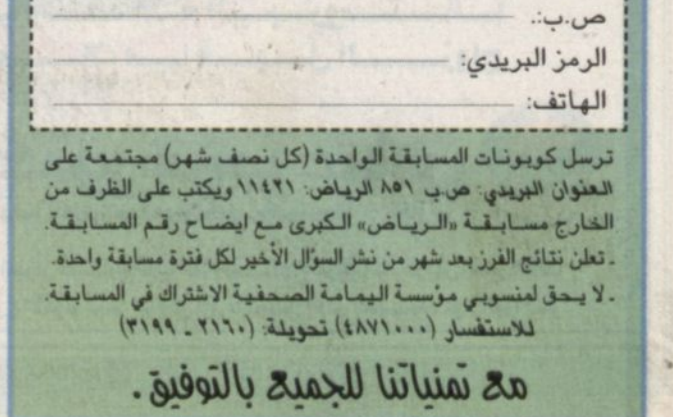 ص.ب:
الرمز البريدي:
الهاتف:
ترسل كوبونات المسابقة الواحدة (كل نصف شهر) مجتمعة على
العنوان البريدي: ص.ب ٨٥١ الرياض: ١١٤٢١ ويكتب على الظرف من
الخارج مسابقة «الرياض» الكبرى مع ايضاح رقم المسابقة.
. تعلن نتائج الفرز بعد شهر من نشر السؤال الأخير لكل فترة مسابقة واحدة.
. لا يحق لمنسوبي مؤسسة اليمامة الصحفية الاشتراك في المسابقة.
للاستفسار (٤٨٧١٠٠٠) تحويلة: (٢١٦٠ ـ ٣١٩٩)
مع تمنياتنا للجميع بالتوفيق .